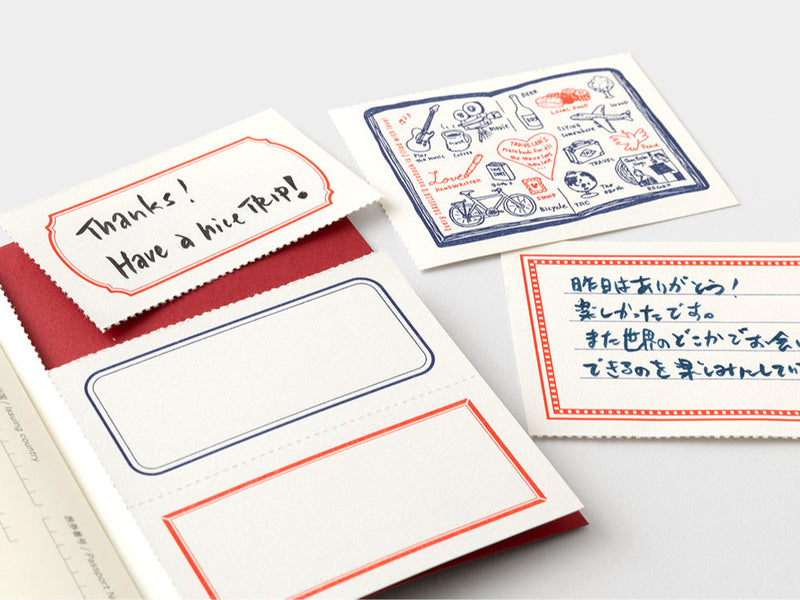 Thanks!
Have a nice TRIP!
BEER
LOCAL FOOD
WOOD
Movie
FLYING
Somewhere
Play
the music
Coffee
TRAVELER'S
notebook for all
PEACE
TRAVEL
Love
HANDWRITTEN
BOOKS
STAMP
Bicycle
The
Earth
RECORD
TRC
昨日はありがとう!
楽しかったです。
また世界のどこかでお会い
できるのを楽しみにしてい
/ Issuing country
旅券番号 / Passport N